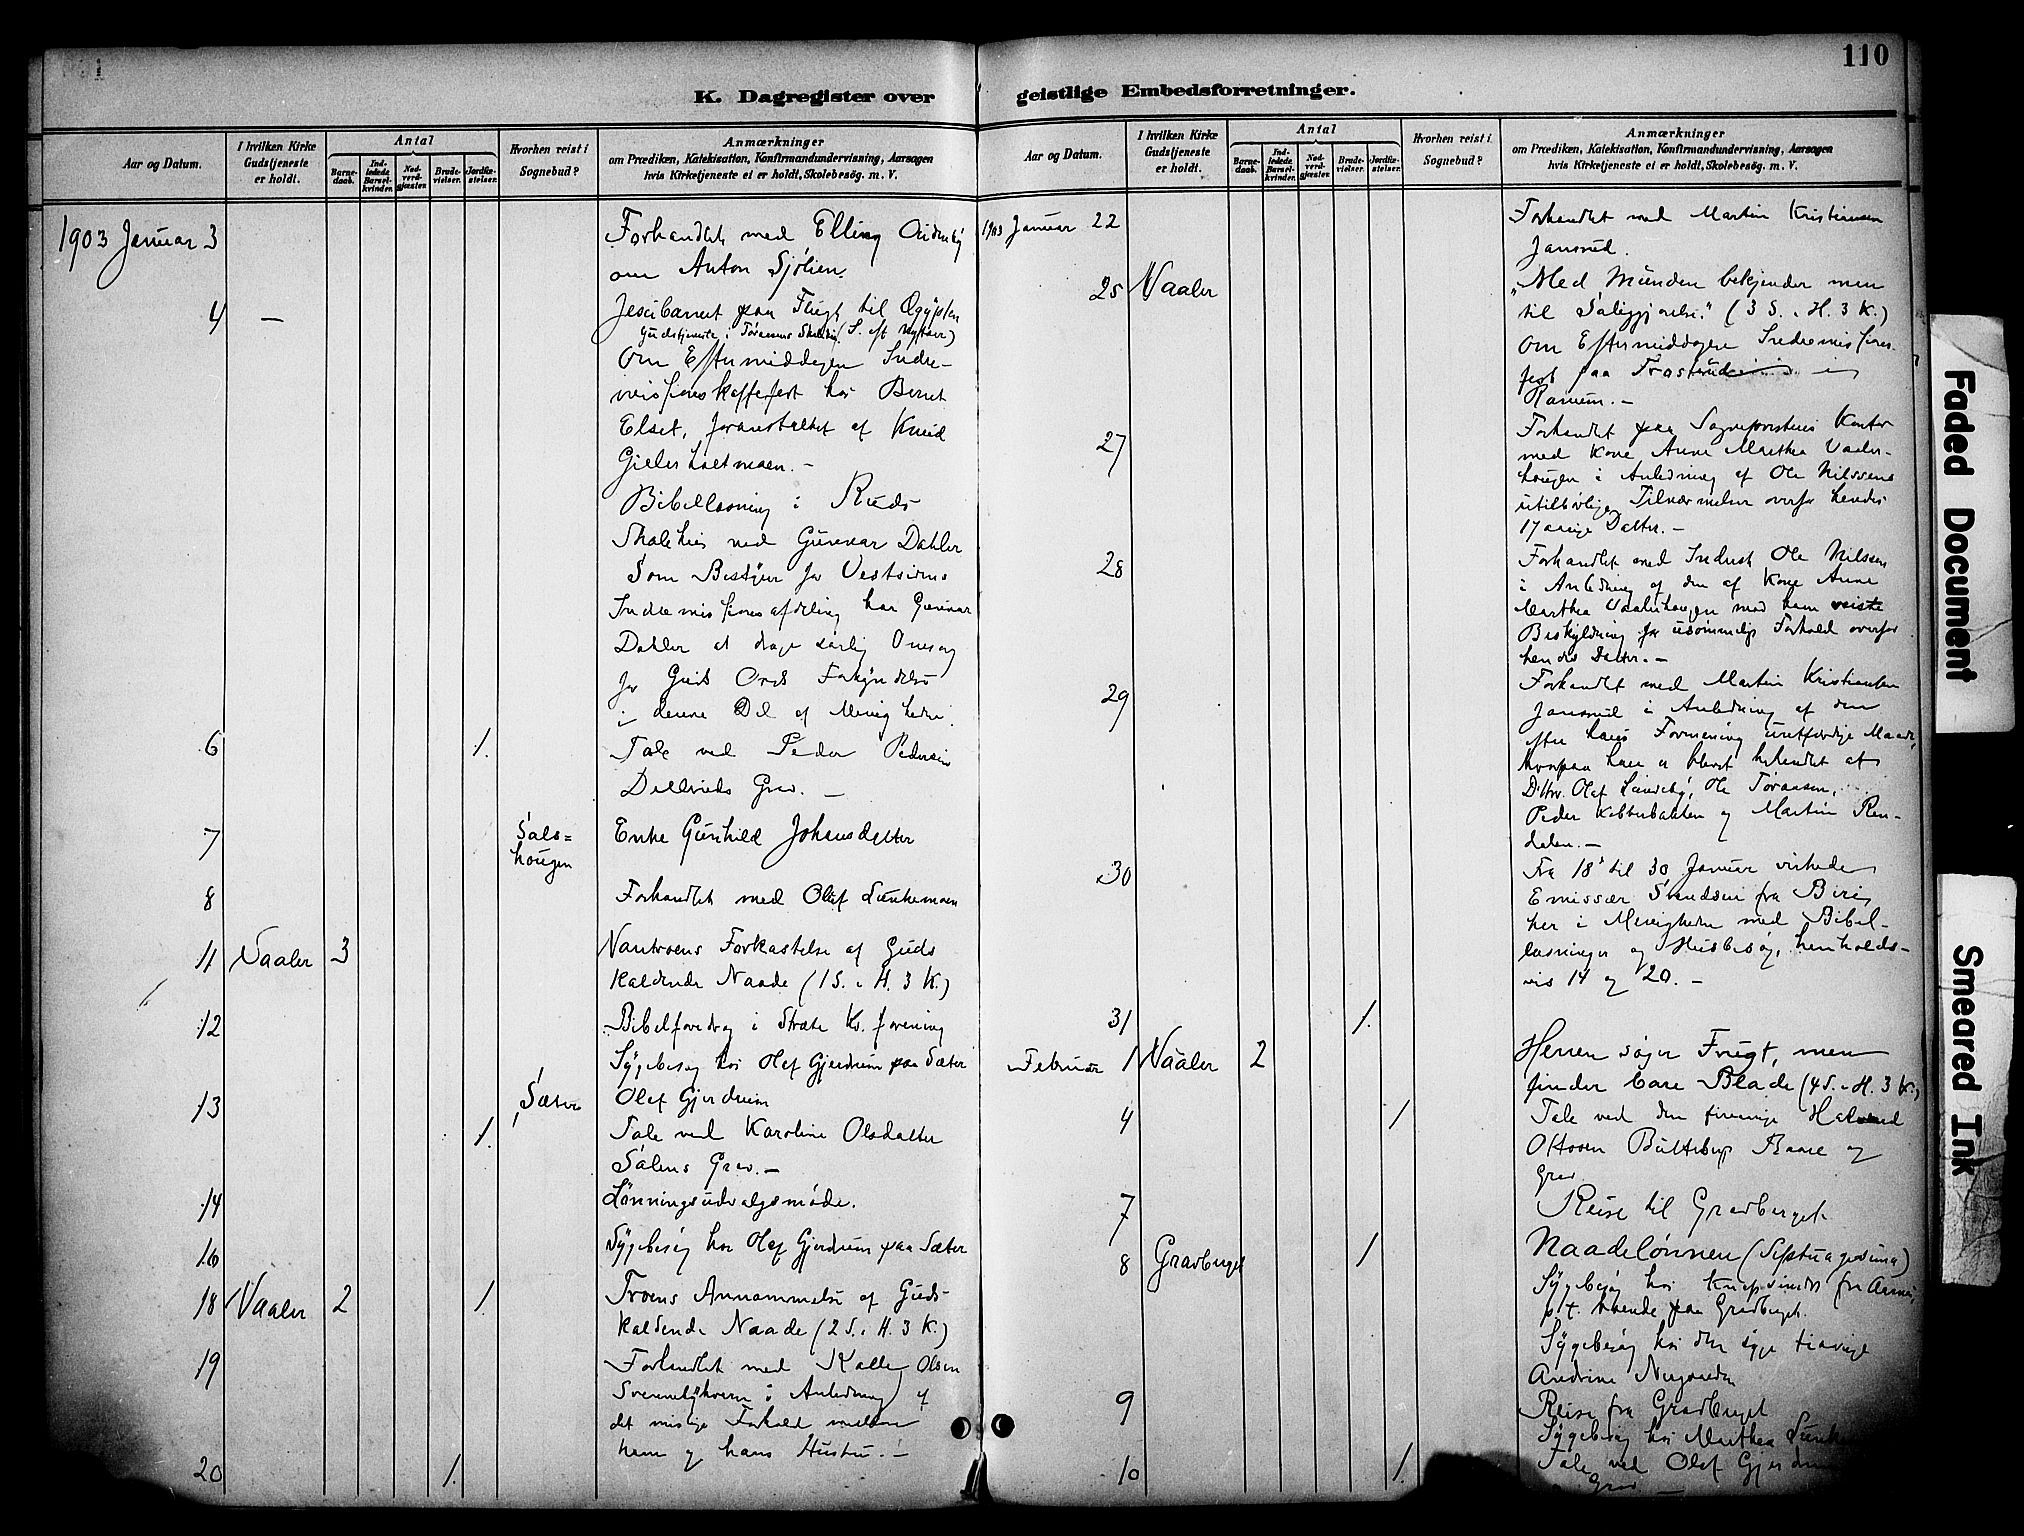 110
K. Dagregister over geistlige Embedsforretninger.
Aar og Datum.
I hvilken Kirke Gudstjeneste er holdt.
Antal
Barne-daab.
Ind-ledede Barsel-kvinder.
Nad-verd-gjæster.
Brude-vielser.
Jordfæ-stelser.
Hvorhen reist i Sognebud?
Anmærkninger
om Prædiken, Katekisation, Konfirmandundervisning, Aarsagen
hvis Kirketjeneste ei er holdt, Skolebesøg. m. V.
1903 Januar 3
Forhandlet med Elling
om Anton Sjølien.
4 –
Jesubarnet paa Flugt til Ægypten
Gudstjeneste i (S. eft Nytaar)
Om Eftermiddagen Indre-
missionskaffefest hos Bernt
Elset, foranstaltet af Knud
Gjelsholtmoen. –
Bibellæsning i Ruds
Skolehus ved Gunnar Dahler
Som Bestyrer for Vestsidens
Indremissionsafdeling har Gunnar
Dahler at drage særlig Omsorg
for Guds Ords Forkyndelse
i denne Del af Menigheden.
6 1.
Tale ved Peder Pedersen
Grav. –
7 Sals=
hougen
Enke Gunhild Johansdatter
8
Forhandlet med Olaf Lunkemoen
11 Vaaler 3
Vantroens Forkastelse af Guds
kaldende Naade (1 S. i H. 3 K.)
12
Bibelforedrag i Kv. forening
Sygebesøg hos Olaf Gjerdrum paa Sæter
13 Sæter
Olaf Gjerdrum
1.
Tale ved Karoline Olsdatter
Grav. –
14
Lønningsudvalgsmøde.
16
Sygebesøg hos Olaf Gjerdrum paa Sæter
18 Vaaler 2 1.
Troens Annammelse af Guds
kaldende Naade (2 S. i H. 3 K.)
19
Forhandlet med Kalle Olsen
i Anledning af
det mislige Forhold mellem
ham og hans Hustru. –
20 1.
Aar og Datum.
I hvilken Kirke Gudstjeneste er holdt.
Antal
Barne-daab.
Ind-ledede Barsel-kvinder.
Nad-verd-gjæster.
Brude-vielser.
Jordfæ-stelser.
Hvorhen reist i Sognebud?
Anmærkninger
om Prædiken, Katekisation, Konfirmandundervisning, Aarsagen
hvis Kirketjeneste ei er holdt, Skolebesøg. m. V.
1903 Januar 22
Forhandlet med Martin Kristiansen
Jansrud.
25 Vaaler
"Med Munden bekjender man
til Saliggjørelse." (3 S. i H. 3 K.)
Om Eftermiddagen Indremissions-
fest paa i
Ramem. –
27
Forhandlet paa Sognepræstens Kontor
med Kone Anne Marthea Vaaler-
hougen i Anledning af Ole Nilssens
utilbørlige Tilnærmelser overfor hendes
17 aarige Datter. –
28
Forhandlet med Indust Ole Nilssen
i Anledning af den af Kone Anne
Marthea Vaalerhougen mod ham reiste
Beskyldning for usømmeligt Forhold overfor
hendes Datter. –
29
Forhandlet med Martin Kristiansen
Jansrud i Anledning af den
efter hans Formening uretfærdige Maade,
hvorpaa han er blevet behandlet af
D'Hrr. Olaf Lundeby, Ole Tøraasen,
Peder Kobberbakken og Martin Ren-
dalen. –
30
Fra 18' til 30 Januar virkede
Emissær Svendsen fra Biri
her i Menigheden med Bibel-
læsninger og Husbesøg, henholds-
vis 14 og 20. –
31 1.
Februar 1 Vaaler 2
Herren søger Frugt, men
finder bare Blade (4 S. i H. 3 K.)
4 1
Tale ved den Halvard
Ottosen Baare og
Grav
7
Reise til Gravberget
8 Gravberget 1
Naadelønnen (Septuagesima)
Sygebesøg hos fra
p. t. boende paa Gravberget.
Sygebesøg hos den syge
Andrine Nygaarden
9
Reise fra Gravberget
Sygebesøg hos Marthea
10 1.
Tale ved Olaf
Grav –
Faded Document
Smeared Ink